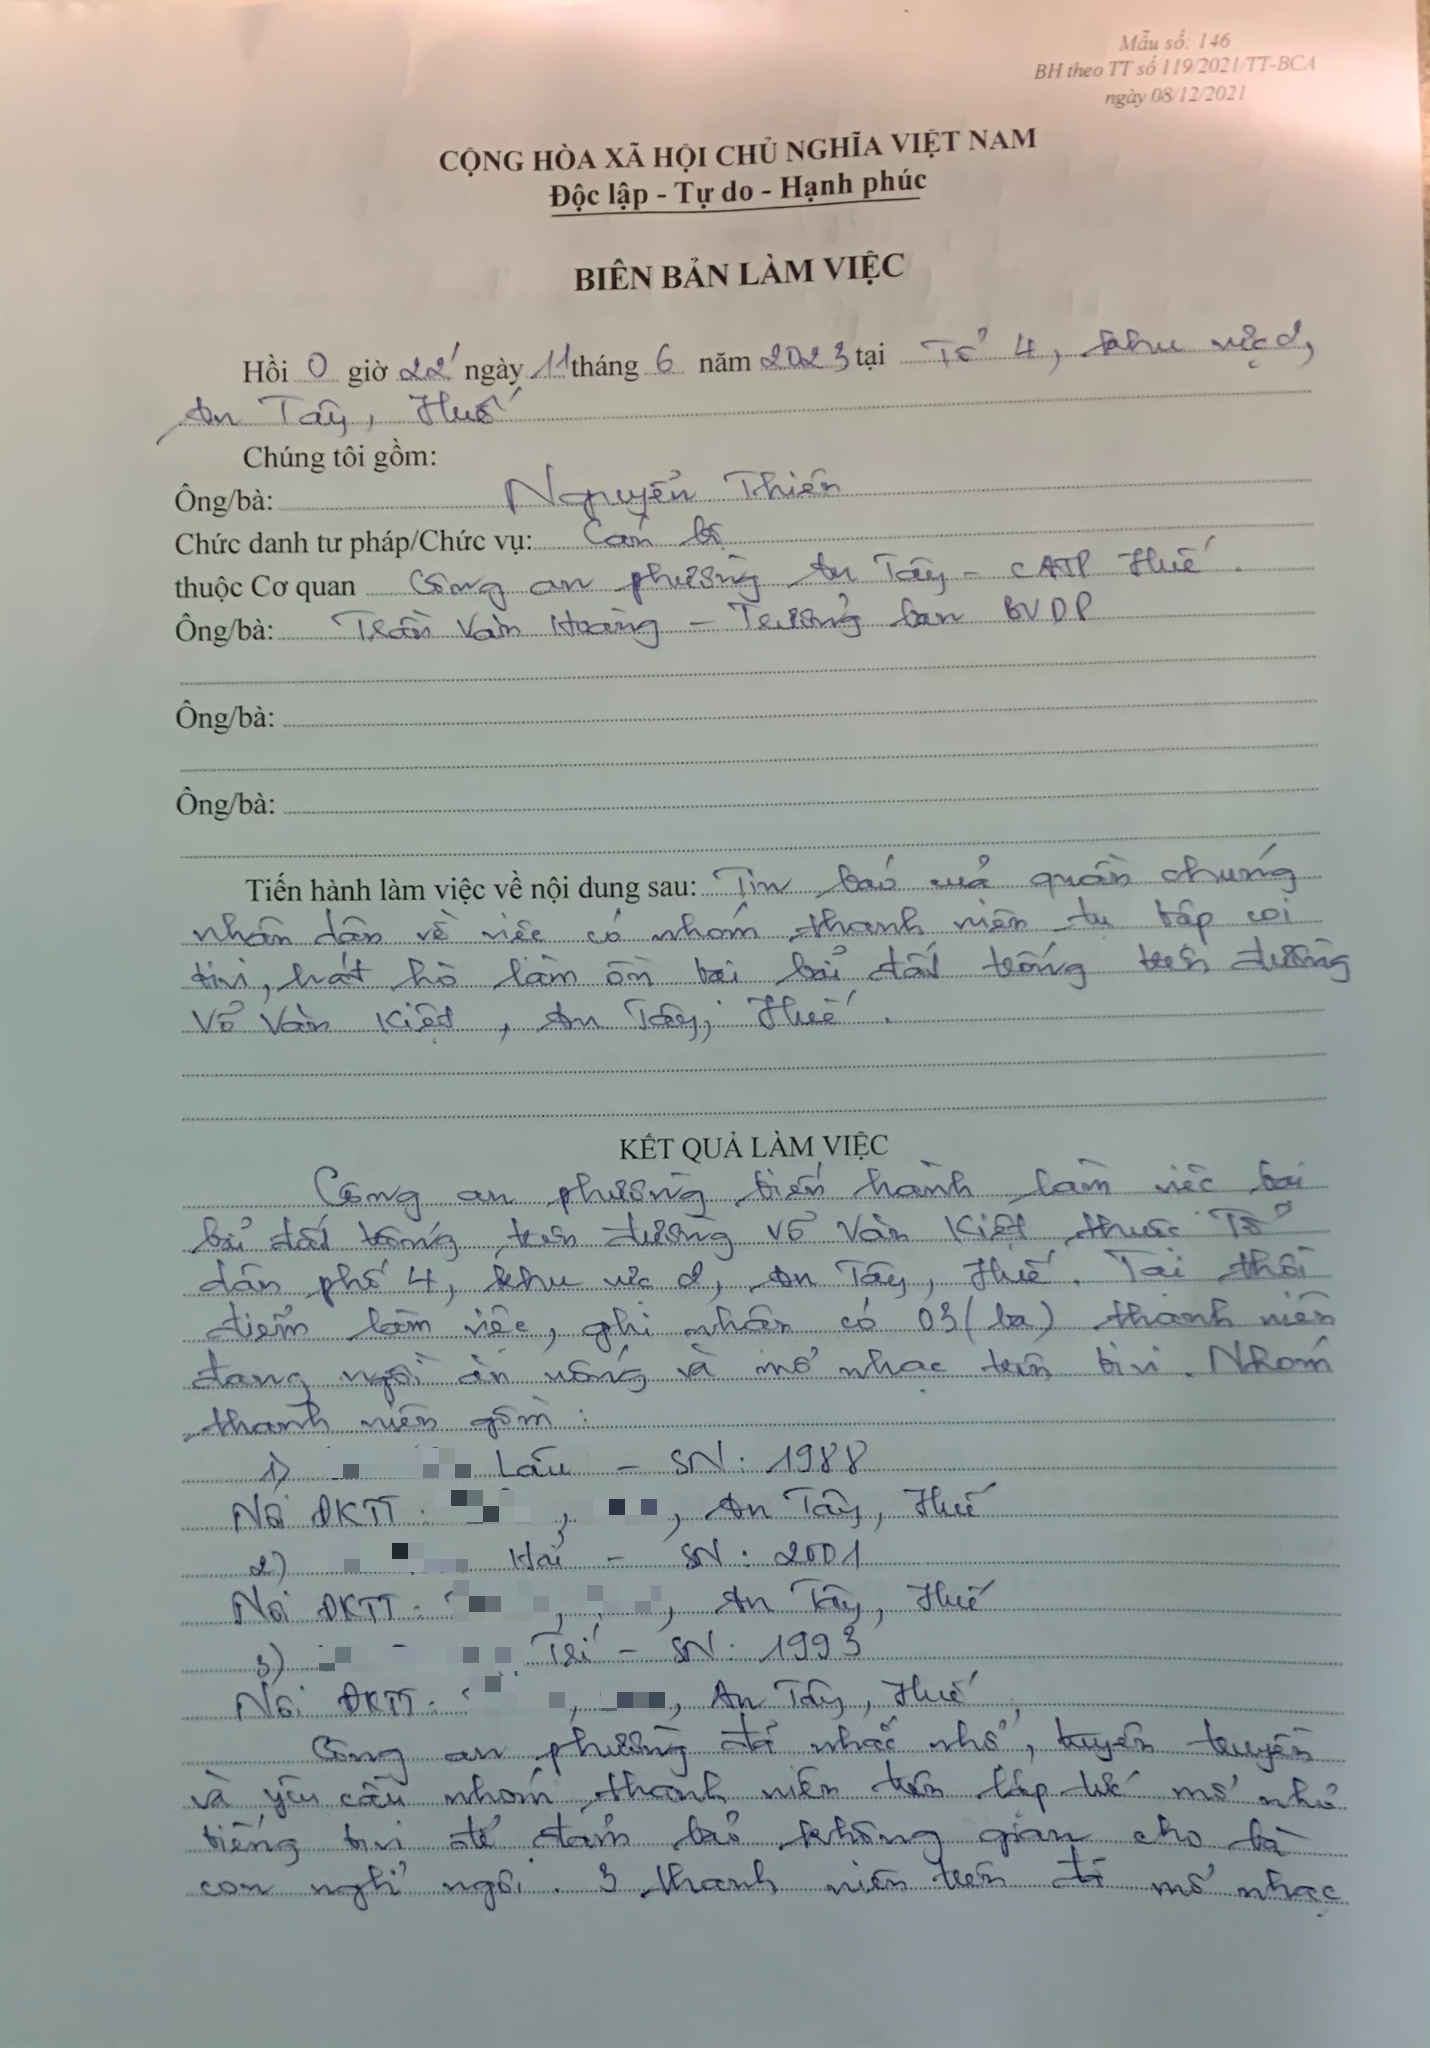 Mẫu số: 146
BH theo TT số 119/2021/TT-BCA
ngày 08/12/2021
CỘNG HÒA XÃ HỘI CHỦ NGHĨA VIỆT NAM
Độc lập - Tự do - Hạnh phúc
BIÊN BẢN LÀM VIỆC
Hồi 0 giờ 22' ngày 11 tháng 6 năm 2023 tại Tổ 4, khu vực 2,
An Tây, Huế
Chúng tôi gồm:
Ông/bà: Nguyễn Thiên
Chức danh tư pháp/Chức vụ: Cán bộ
thuộc Cơ quan Công an phường An Tây - CATP Huế.
Ông/bà: Trần Văn Hoàng - Trưởng ban BVDP
Ông/bà:
Ông/bà:
Tiến hành làm việc về nội dung sau: Tin báo của quần chúng
nhân dân về việc có nhóm thanh niên tụ tập coi
tivi, hát hò làm ồn tại bãi đất trống trên đường
Võ Văn Kiệt, An Tây, Huế.
KẾT QUẢ LÀM VIỆC
Công an phường tiến hành làm việc tại
bãi đất trống trên đường Võ Văn Kiệt thuộc Tổ
dân phố 4, khu vực 2, An Tây, Huế. Tại thời
điểm làm việc, ghi nhận có 03 (ba) thanh niên
đang ngồi ăn uống và mở nhạc trên tivi. Nhóm
thanh niên gồm:
1) Lâu - SN: 1988
Nơi ĐKTT: , , An Tây, Huế
2) Hải - SN: 2001
Nơi ĐKTT: , , An Tây, Huế
3) Trí - SN: 1993
Nơi ĐKTT: , , An Tây, Huế
Công an phường đã nhắc nhở, tuyên truyền
và yêu cầu nhóm thanh niên trên lập tức mở nhỏ
tiếng tivi để đảm bảo không gian cho bà
con nghỉ ngơi. 3 thanh niên trên đã mở nhạc